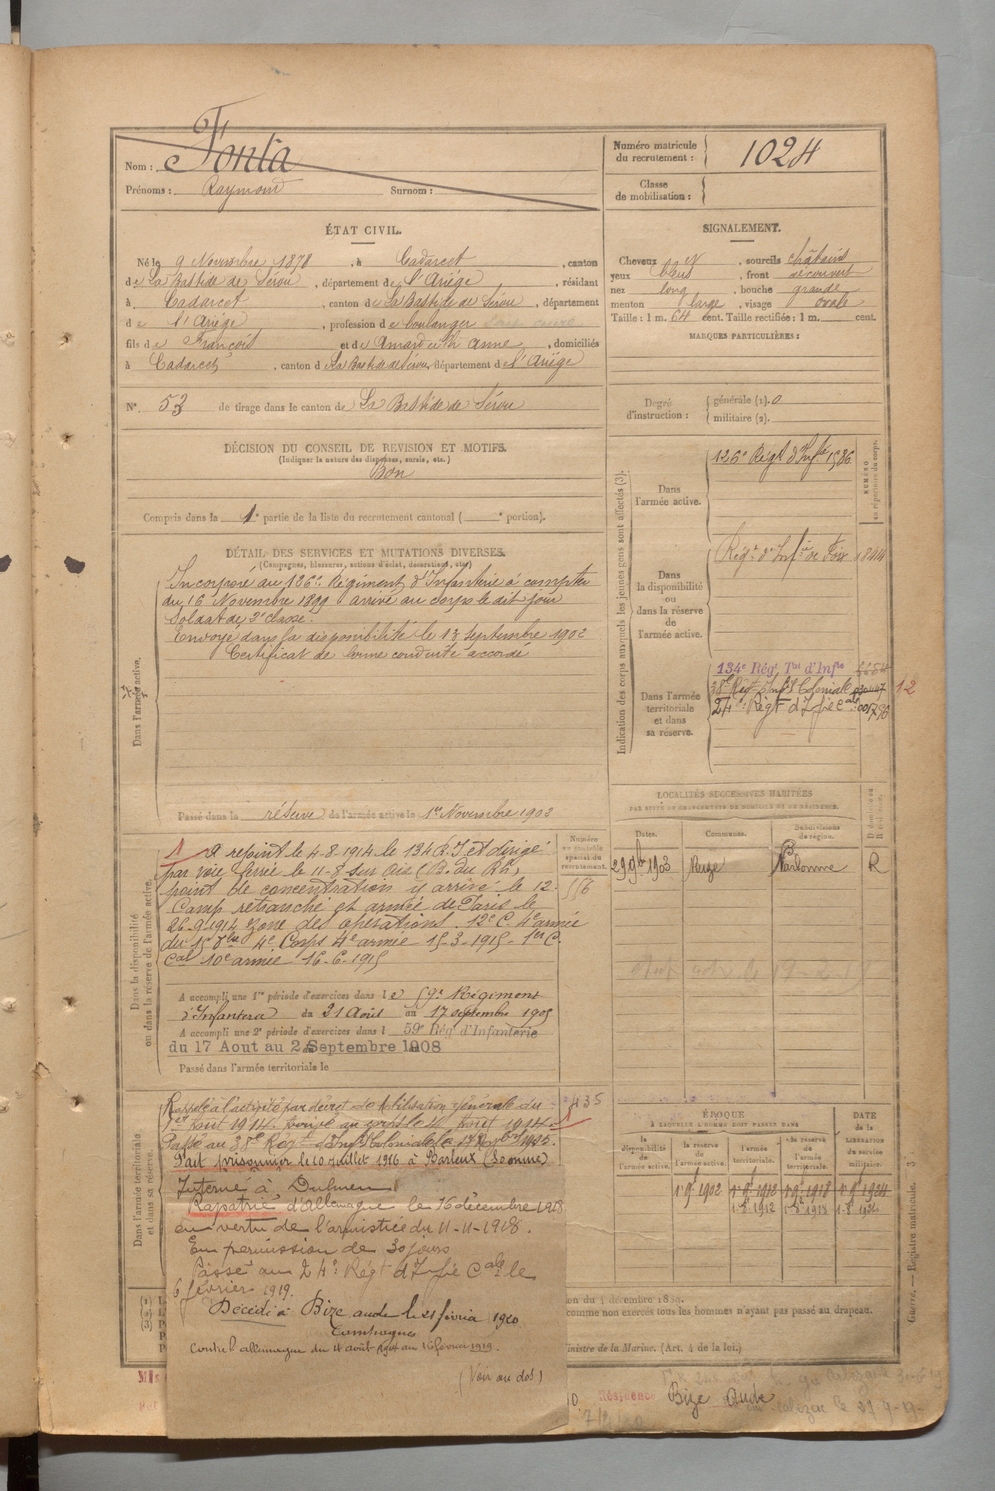 Nom : Fonta
Prénoms : Raymond Surnom :
Numéro matricule
du recrutement : 1024
Classe
de mobilisation :
ÉTAT CIVIL.
Né le 9 Novembre 1878, à Cadarcet, canton
de La Bastide de Sérou, département de l'Ariège, résidant
à Cadarcet, canton de La Bastide de Sérou, département
de l'Ariège, profession de boulanger
fils de François et de Anne, domiciliés
à Cadarcet, canton de La Bastide de Sérou, département de l'Ariège
N° 53 de tirage dans le canton de La Bastide de Sérou
SIGNALEMENT.
Cheveux et, sourcils châtains
yeux bleus, front découvert
nez long, bouche grande
menton large, visage ovale
Taille : 1 m. 64 cent. Taille rectifiée : 1 m. cent.
MARQUES PARTICULIÈRES :
Degré
d'instruction : générale (1). 0
militaire (2).
DÉCISION DU CONSEIL DE REVISION ET MOTIFS.
(Indiquer la nature des dispenses, sursis, etc.)
Bon
Compris dans la 1e partie de la liste du recrutement cantonal ( e portion).
DÉTAIL DES SERVICES ET MUTATIONS DIVERSES.
(Campagnes, blessures, actions d'éclat, décorations, etc.)
Dans l'armée active.
Incorporé au 126e Régiment d'Infanterie à compter
du 16 Novembre 1899 arrivé au corps le dit jour
Soldat de 2e classe.
Envoyé dans la disponibilité le 13 septembre 1902
Certificat de bonne conduite accordé
Passé dans la réserve de l'armée active le 1er Novembre 1902
Indication des corps auxquels les jeunes gens sont affectés (3).
NUMÉRO
au répertoire du corps.
Dans
l'armée active.
126e Régt d'Infie 1586
Dans
la disponibilité
ou
dans la réserve
de
l'armée active.
Régt d'Infie de Foix 1844
Dans l'armée
territoriale
et dans
sa réserve.
134e Régt Tal d'Infie
38e Régt Infie Coloniale
24e Régt d'Infie Cale
12
LOCALITÉS SUCCESSIVES HABITÉES
PAR SUITE DE CHANGEMENTS DE DOMICILE OU DE RÉSIDENCE.
Dates. Communes. Subdivisions
de région.
29 9b 1903 Bize Narbonne R
Dans la disponibilité
ou dans la réserve de l'armée active.
Numéro
au contrôle
spécial du
recrutement.
A rejoint le 4-8-1914 le 134e R.I et dirigé
par voie ferrée le 11-8 sur (B. du Rh)
point de concentration y arrivé le 12
Camp retranché et armée de Paris le
26-9-1914 zone des opérations. 12e C. 4e armée
4e Corps 4e armée 15-3-1915 - 1er C.
Cal 10e armée 16-6-1915
A accompli une 1re période d'exercices dans le 59e Régiment
d'Infanterie du 21 Août au 17 septembre 1905
A accompli une 2e période d'exercices dans l 59e Rég d'Infanterie
du 17 Aout au 2 Septembre 1908
Passé dans l'armée territoriale le
Dans l'armée territoriale
et dans sa réserve.
435
Rappelé à l'activité par décret de Mobilisation générale du
1er Août 1914. au corps le 4 Août 1914.
Passé au 38e Régt d'Infie Coloniale le
Fait prisonnier le 10 juillet 1916 à Barleux (Somme)
Interné à Dulmen
Rapatrié d'Allemagne le 16 décembre 1918
en vertu de l'armistice du 11-11-1918.
En permission de 30 jours
Passé au 24e Régt d'Infie Cale le
6 février 1919.
Décédé à Bize Aude le 21 février 1920
Campagnes
Contre l'allemagne du 4 août 1914 au 16 février 1919.
(Voir au dos)
ÉPOQUE
À LAQUELLE L'HOMME DOIT PASSER DANS
DATE
de la
LIBÉRATION
du service
militaire.
la
disponibilité
de
l'armée active.
la réserve
de
l'armée active.
l'armée
territoriale.
la réserve
de l'armée
territoriale.
1r 9b 1902 1r 9b 1912 1r 9b 1918 1r 9b 1924
Guerre. — Registre matricule. 3.
comme non exercés tous les hommes n'ayant pas passé au drapeau.
Ministre de la Marine. (Art. 4 de la loi.)
Résidence Bize Aude